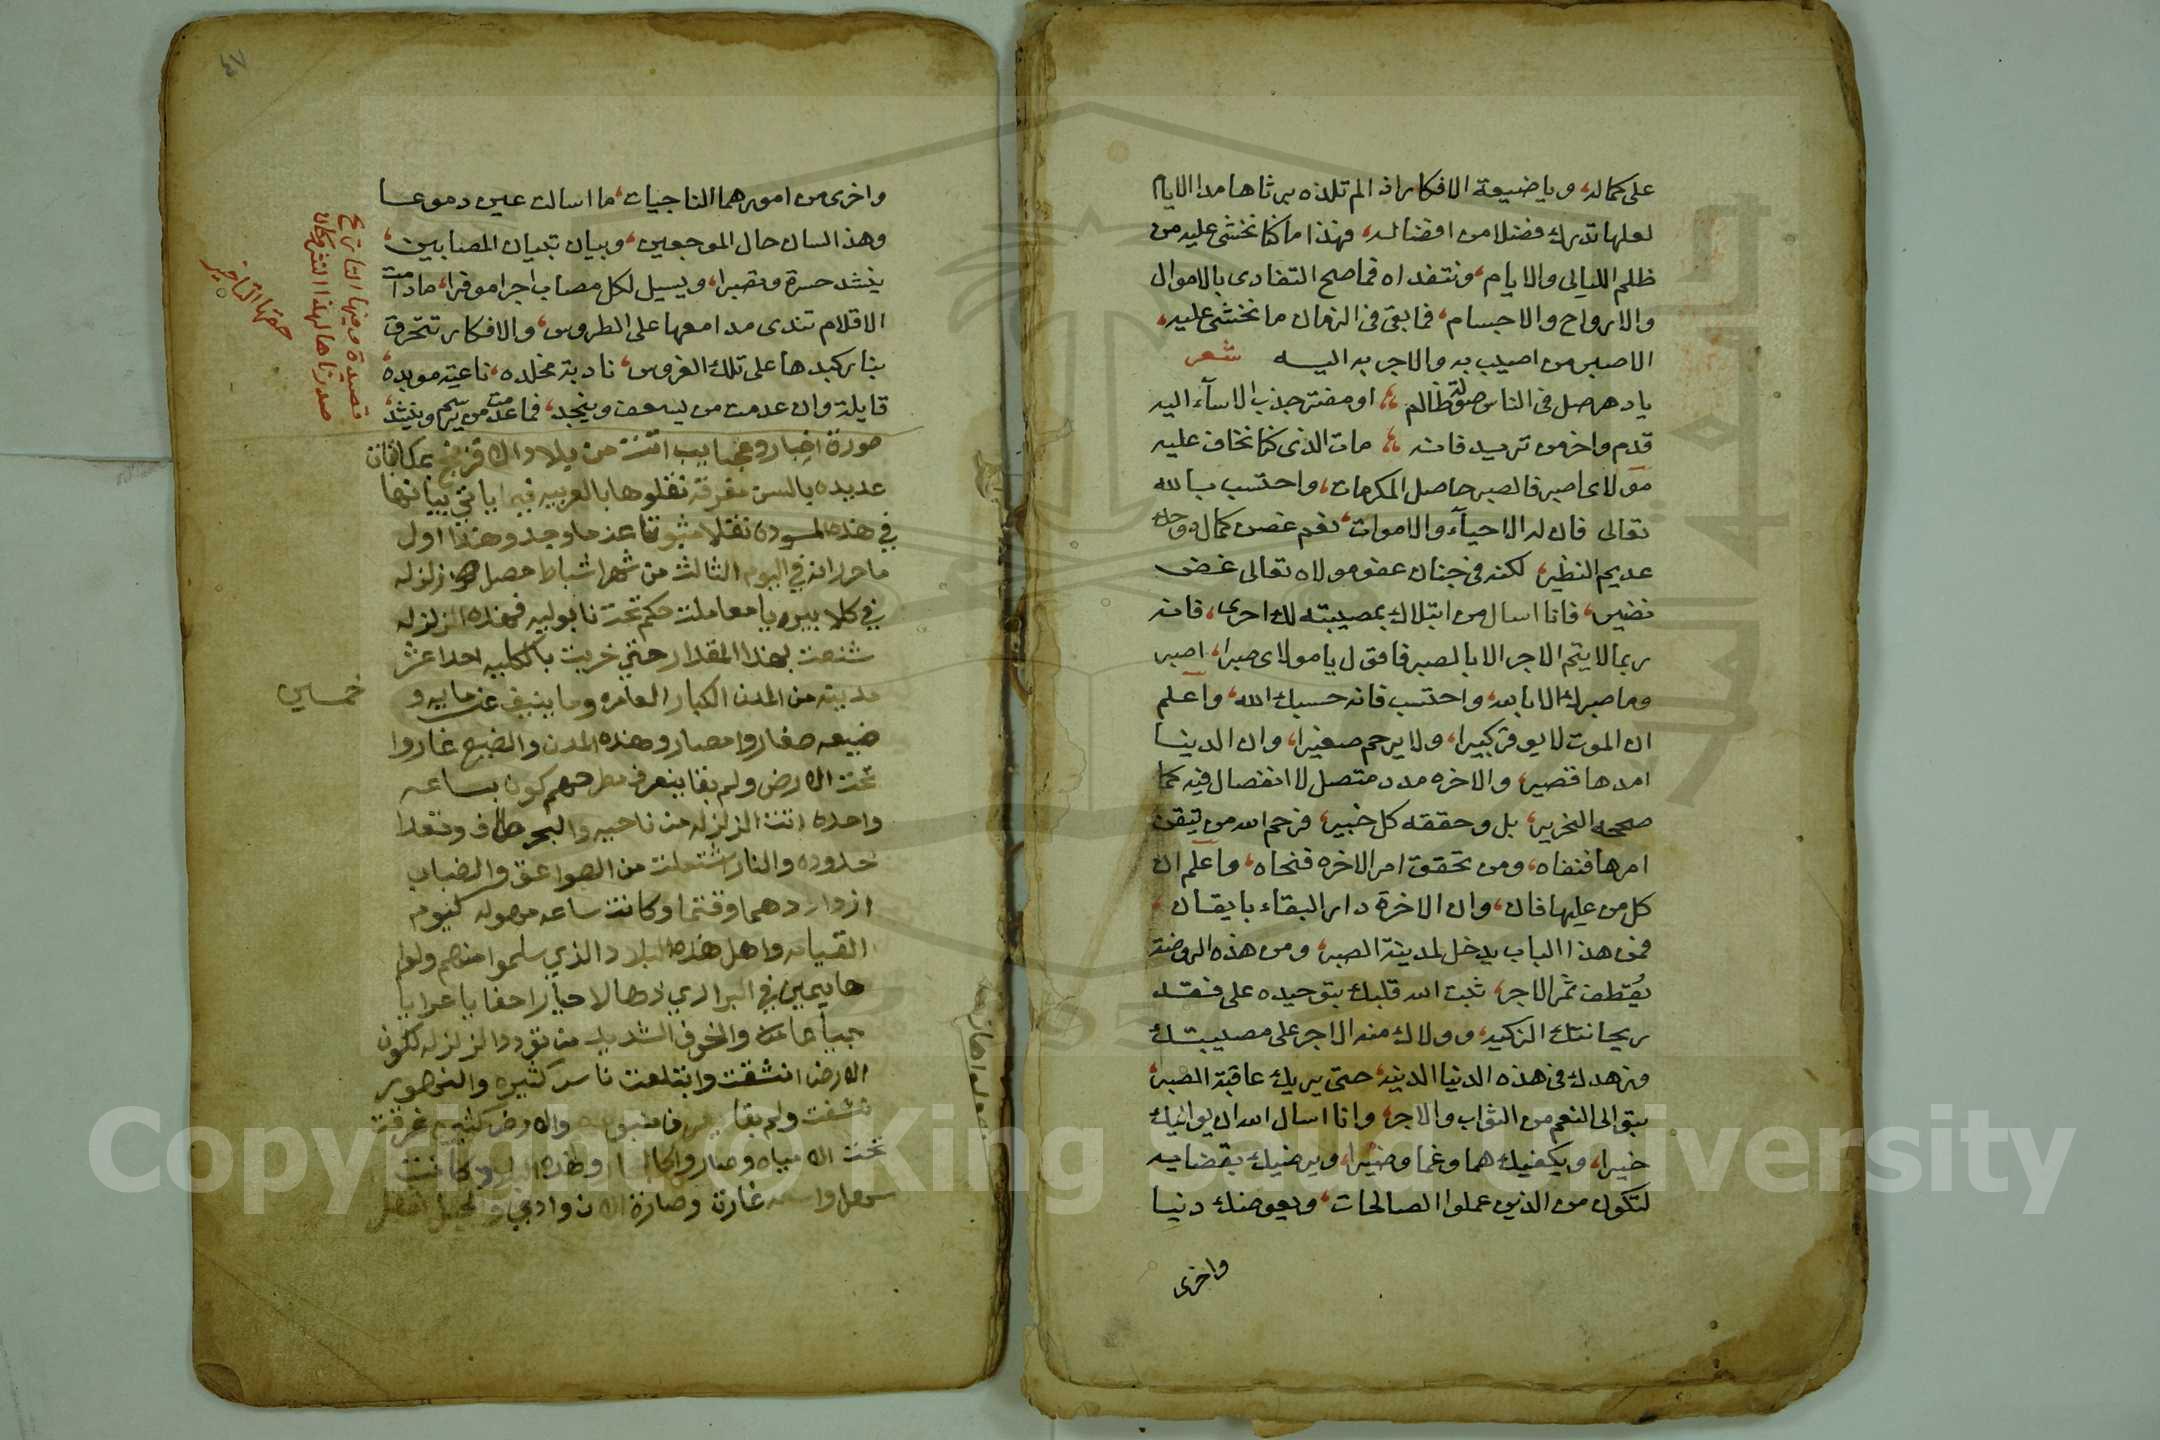 على كماله، ويا ضيعة الافكار اذ المتلذه برثاها مدا الايام
لعلها تدرك فضلا من افضاله، فهذا ما كنا نخشى عليه من
ظلم الليالى والايام، ونتفداه فما صح التفادى بالاموال
والارواح والاجسام، فما بقى فى الزمان ما نخشى عليه،
الا صبر من اصيب به والاجر به اليه شعر
يا دهر صل فى الناس صولة ظالم أو مفتر جذب الاسآء اليه
قدم واخر من تريد فانه مات الذى كنا نخاف عليه
مولاى اصبر فالصبر حاصل المكرمات، واحتسب بالله
تعالى فان له الاحيآء والاموات، نعم غصن كماله
عديم النظير، لكنه فى جنان عفو مولاه تعالى غض
نضير، فانا اسال من ابتلاك بمصيبته لك اجرى، فانه
ربما لا يتم الاجر الا بالصبر فاقول يا مولاى صبرا، اصبر
وما صبرك الا بالله، واحتسب فانه حسبك الله، واعلم
ان الموت لا يوقر كبيرا، ولا يرحم صغيرا، وان الدينا
امدها قصير، والاخره مدد متصل لا انفصال فيه كما
صححه النحرير، بل وحققه كل خبير، فرحم الله من تيقن
امرها فنفاه، ومن تحقق امر الاخره فنحاه، واعلم ان
كل من عليها فان، وان الاخرة دار البقاء بايقان،
فمن هذا الباب يدخل لمدينة الصبر، ومن هذه الروضة
يُقتطف ثمر الاجر، ثبت الله قلبك بتوحيده على فقد
ريحانتك الزكيه، وولاك منه الاجر على مصيبتك
وزهدك فى هذه الدنيا الدنيه، حتى يريك عاقبة الصبر،
بتوالى النعم من الثواب والاجر، وانا اسال الله ان يوانيك
خيرا، ويكفيك هما وغما وضيرا، ويرضيك بقضايه
لتكون من الذين عملوا الصالحات، ويعوضك دنيا
واخرى
٤٧
واخرى من امورهما الناجيات، ما اسالت عين دموعا
وهذا لسان حال الموجعين، وبيان تبيان المصابين،
ينشد حسرة وتصبرا، ويسيل لكل مصاب اجرا موفرا، مادامت
الاقلام تندى مدامعها على الطروس، والافكار تتحرق
بنار كبدها على تلك الغروس، نادبة مخلده، ناعية موبده،
قايلة وان عدمت من يسعف وينجد، فما عدمت من يترحم وينشد،
قصيدة وفيها التاريخ
صدرناها لهذا
حقها التاخير
صورة اخبار وعجايب اتت من بلاد الافرنج بمكاتبات
عديده بالسن مفرقه نقلوها بالعربيه فيما ياتي بيانها
في هذه المسوده نقلا مثبوتا عند ما وجد وهذا اول
ما حرر انه في اليوم الثالث من شهر اشباط حصل زلزله
في كلابيريا معاملت حكم تحت نابوليه فهذه الزلزله
شنعت بهذا المقدار حتي خربت بالكليه احدا عشر
مدينه من المدن الكبار العامره وما ينيف عن مايه و
خمسين
ضيعه صغار وامصار وهذه المدن والضيع غاروا
تحت الارض ولم بقا ينعرف مطرحهم كون بساعه
واحده اتت الزلزله من ناحيه والبحر طاف وتعدا
حدوده والنار اشتعلت من الصواعق والضباب
ازداد دهما وقتما وكانت ساعه مهوله كيوم
القيامه واهل هذه البلاد الذي سلموا منهم ولوا
هايمين في البراري رجالا حيارا حفايا عرايا
جياعا والخوف الشديد من تردد الزلزله لكون
الارض انشقت وابتلعت ناس كثيره والنهور
نشفت ولم بقا والارض كثير غرقت
تحت الامياه وصاروا وهذه البلاد كانت
واسعه غارة وصارة الان وادي والجبل